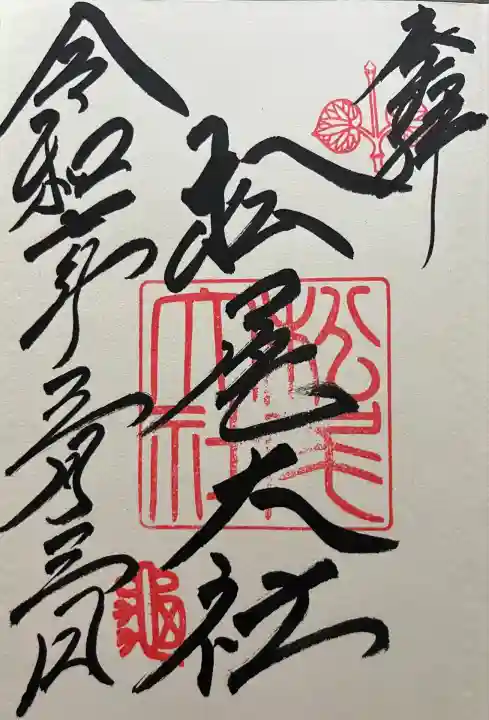 奉拝
松尾大社
令和年三月三日
松尾大社
亀